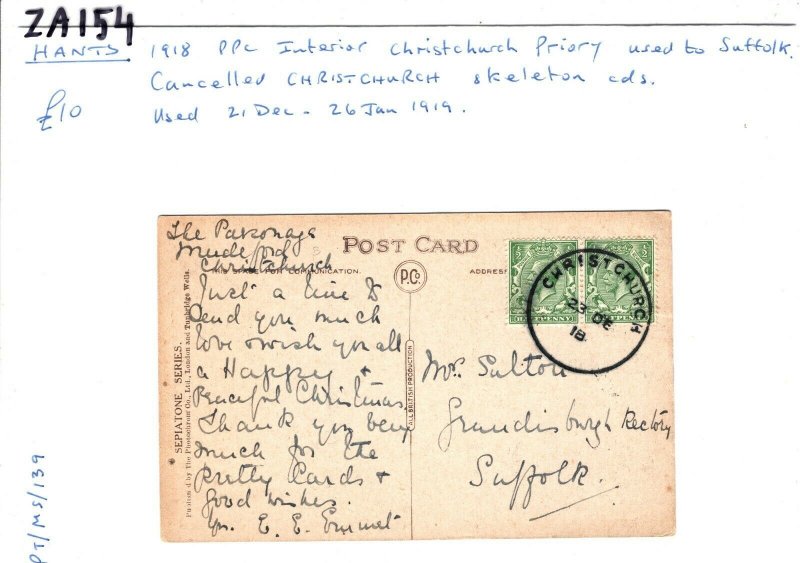 ZA154
HANTS 1918 PPC Interior Christchurch Priory used to Suffolk.
Cancelled CHRISTCHURCH skeleton cds.
£10
Used 21 Dec - 26 Jan 1919.
The Parsonage
Mudeford
Christchurch
POST CARD
THIS SPACE FOR COMMUNICATION.
P.Co
ADDRESS
CHRISTCHURCH
23 DE
18
Just a line to
send you much
love & wish you all
a Happy &
Peaceful Christmas
Thank you very
much for the
pretty Cards &
good wishes.
E. E. Emmet
Mrs. Sulton
Grundisburgh Rectory
Suffolk.
ALL BRITISH PRODUCTION
SEPIATONE SERIES.
Published by the Photochrom Co., Ltd., London and Tunbridge Wells.
PT/MS/139